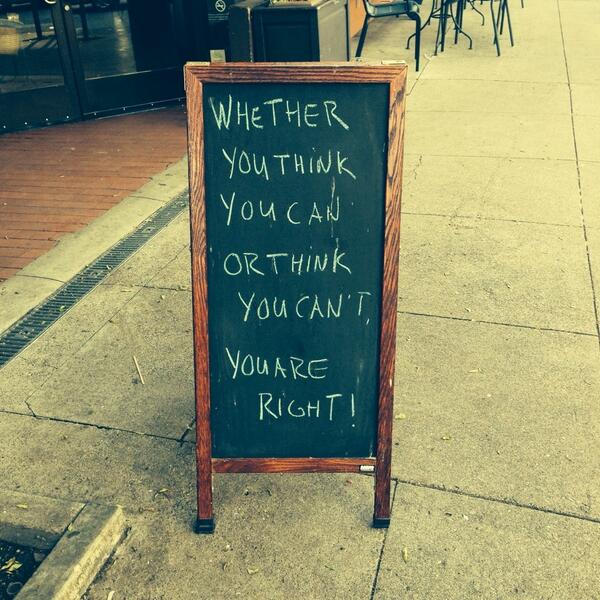 WHETHER
YOU THINK
YOU CAN
OR THINK
YOU CAN'T,
YOU ARE
RIGHT!